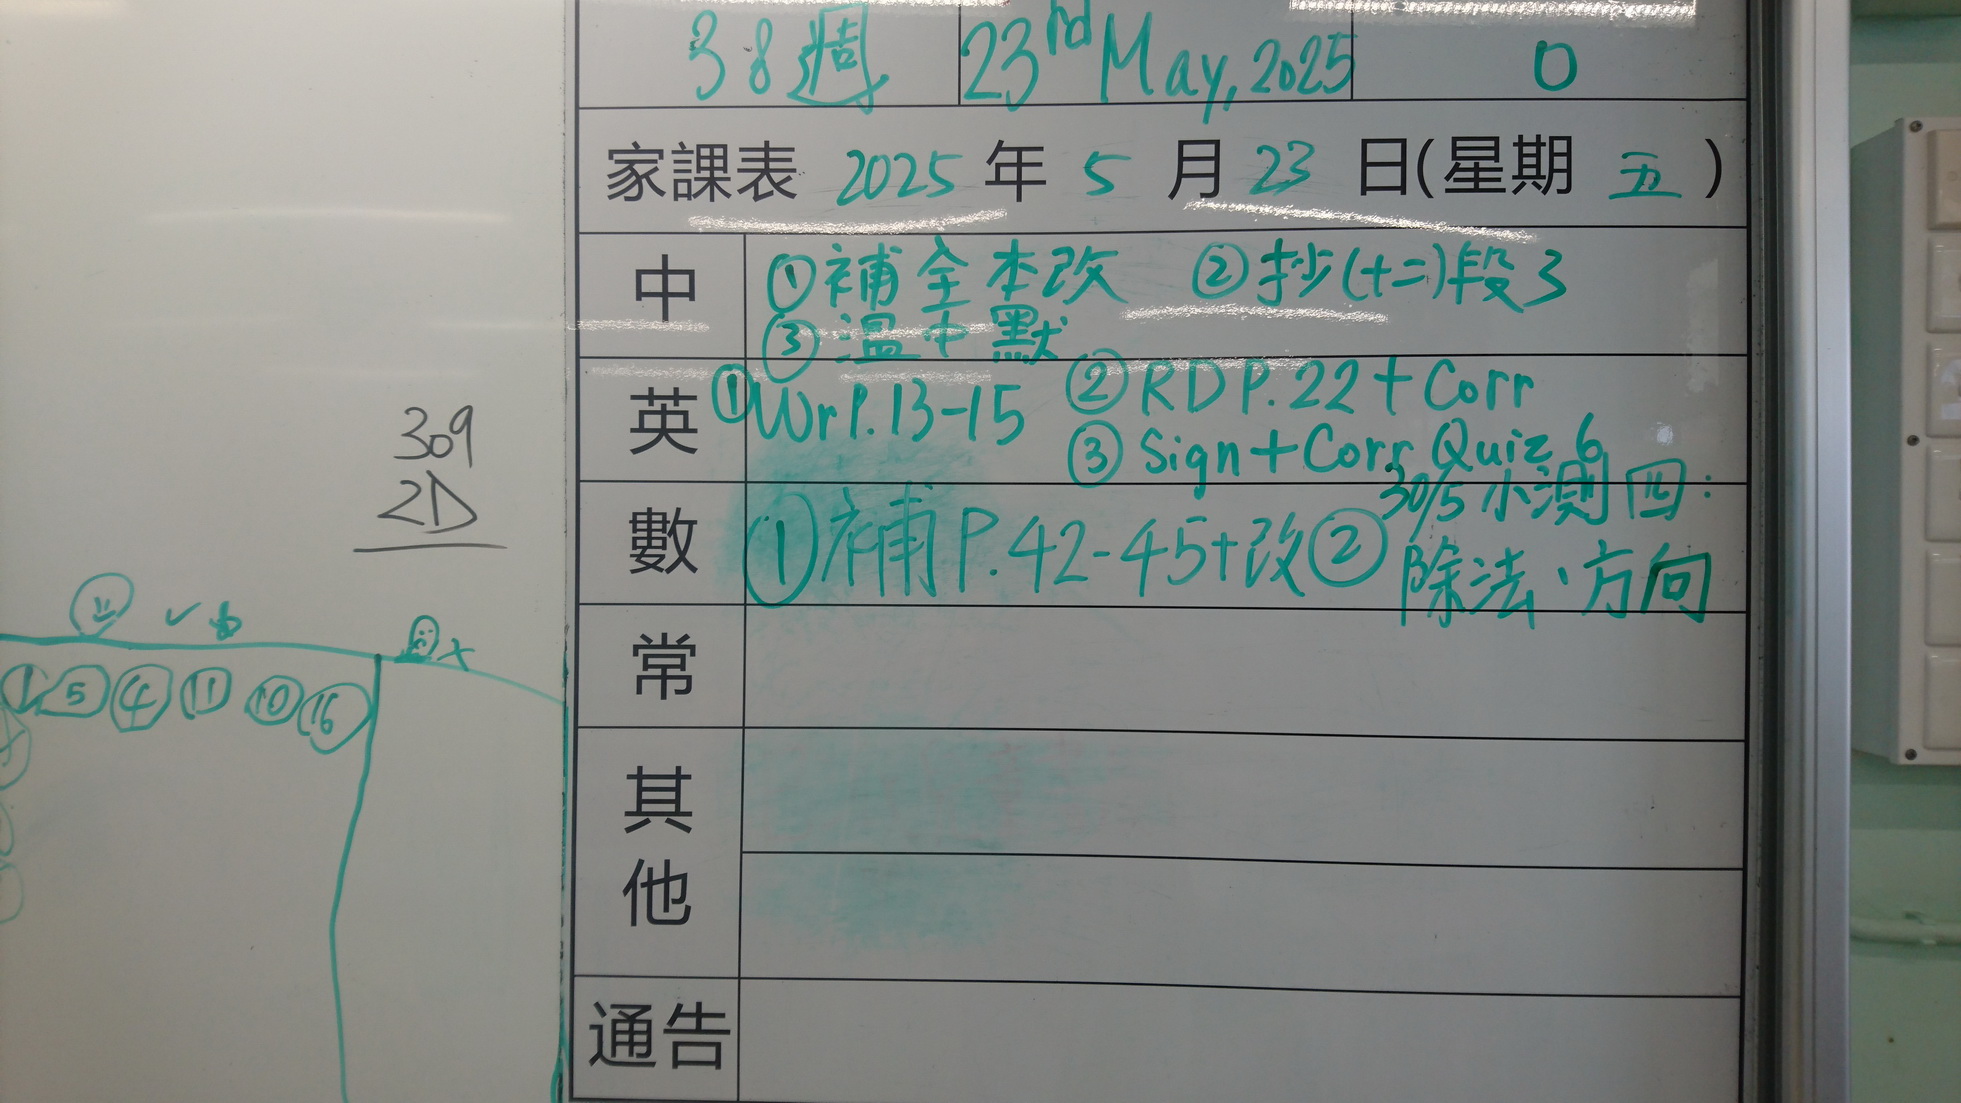 38週 23rd May, 2025 0
家課表 2025 年 5 月 23 日(星期 五 )
中 ①補全本改 ②抄(十二)段3
③溫中默
英 ①Wr P.13-15 ②RD P.22+Corr
③Sign+Corr Quiz 6
數 ①補P.42-45+改② 30/5 小測四:
除法、方向
常
其他
通告
309
2D
① ⑤ ④ ⑪ ⑩ ⑯